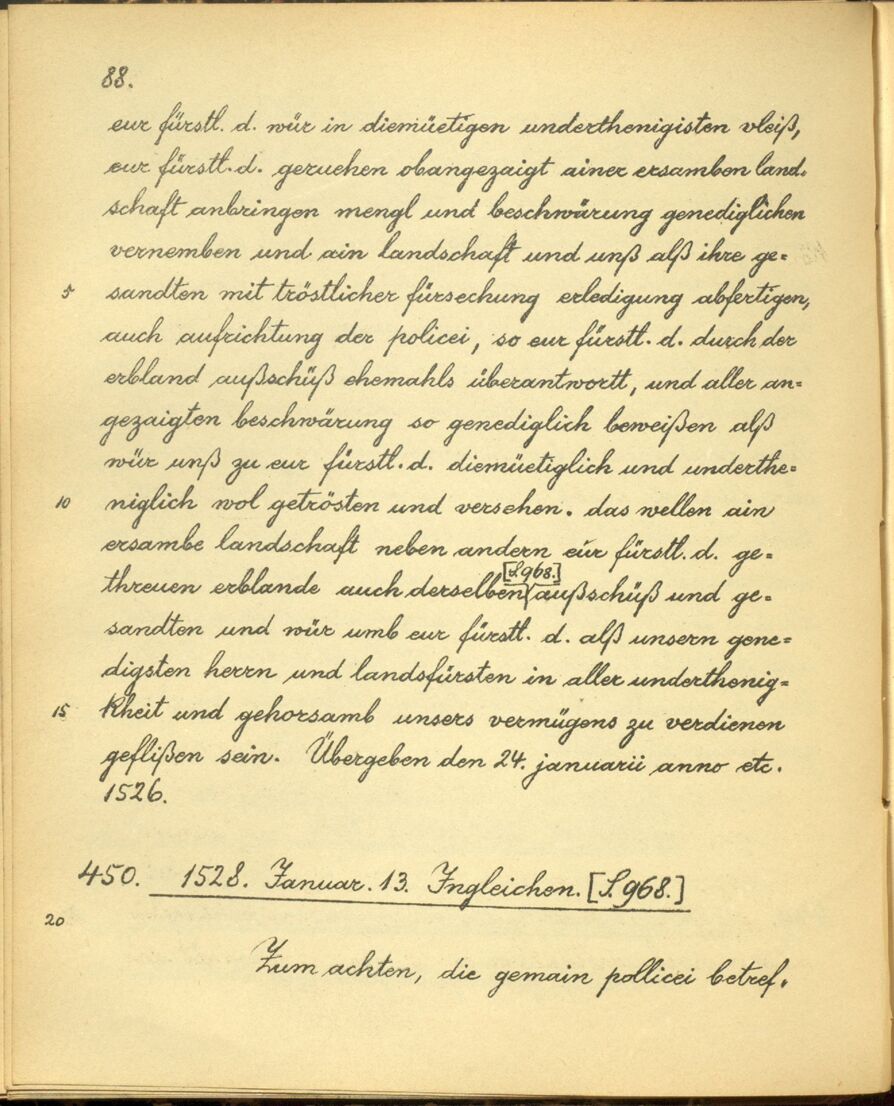 88.
eur fürstl. d. wür in diemüetigen underthenigisten vleiß,
eur fürstl. d. geruehen obangezaigt ainer ersamben land-
schaft anbringen mengl und beschwärung genediglichen
vernemben und ain landschaft und unß alß ihre ge=
5 sandten mit tröstlicher fürsechung erledigung abfertigen,
auch aufrichtung der policei, so eur fürstl. d. durch der
erbland außschüß ehemahls überantwortt, und aller an=
gezaigten beschwärung so genediglich beweißen alß
wür unß zu eur fürstl. d. diemüetiglich und underthe=
10 niglich wol getrösten und versehen. das wellen ain
ersambe landschaft neben andern eur fürstl. d. ge=
[S. 968.]
threuen erblande auch derselben außschüß und ge=
sandten und wür umb eur fürstl. d. alß unsern gene=
digsten herrn und landsfürsten in aller underthenig=
15 kheit und gehorsamb unsers vermügens zu verdienen
geflißen sein. Übergeben den 24. januarii anno etc.
1526.
450. 1528. Januar. 13. Ingleichen. [S. 968.]
20
Zum achten, die gemain pollicei betref-